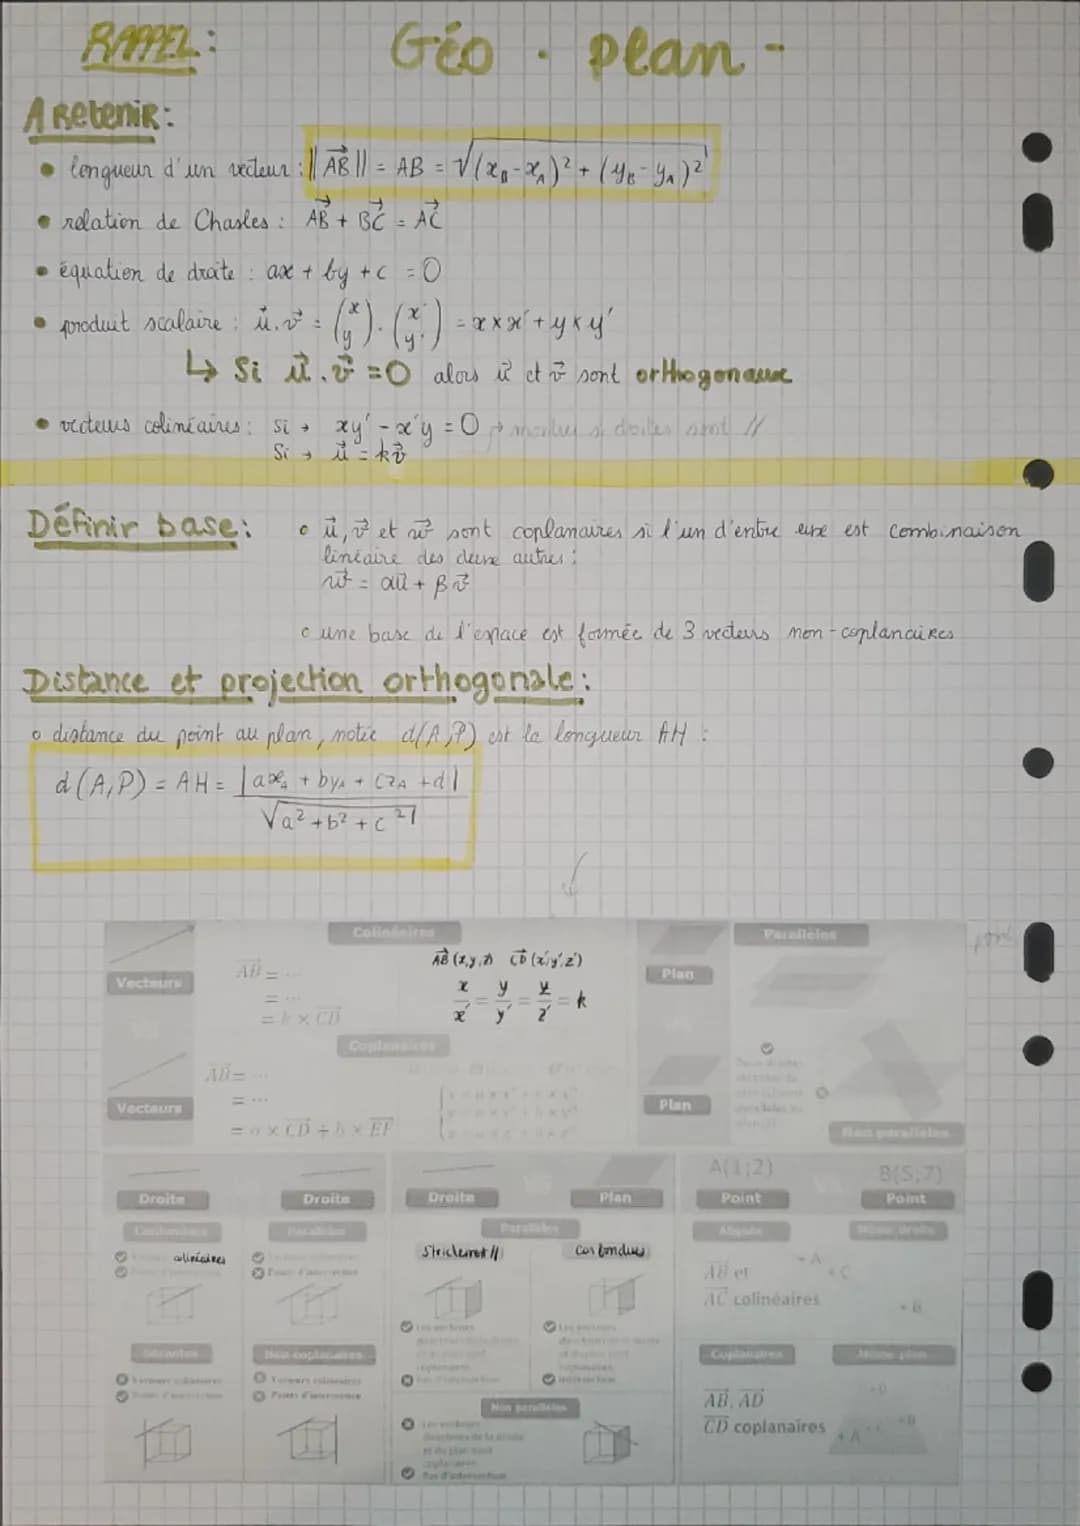 RAPPEL : Géo . plan -
A Retenir :
• longueur d'un vecteur : ||AB|| = AB = √(x_B - x_A)² + (y_B - y_A)²
• relation de Chasles : AB + BC = AC
• équation de droite : ax + by + c = 0
• produit scalaire : u⃗.v⃗ = (x y) . (x' y') = x × x' + y × y'
↳ Si u⃗.v⃗ = 0 alors u⃗ et v⃗ sont orthogonaux
• vecteurs colinéaires : si → xy' - x'y = 0 → montrer si droites sont //
Si → u⃗ = kv⃗
Définir base :
• u⃗, v⃗ et w⃗ sont coplanaires si l'un d'entre eux est combinaison
linéaire des deux autres :
w⃗ = αu⃗ + βv⃗
• une base de l'espace est formée de 3 vecteurs non-coplanaires
Distance et projection orthogonale :
• distance du point au plan, notée d(A,P) est la longueur AH :
d(A,P) = AH = |ax_A + by_A + cz_A + d|
√a² + b² + c²
Colinéaires
Vecteurs
AB = ...
= ...
= k × CD
AB (x,y,z) CD (x',y',z')
x/x' = y/y' = z/z' = k
Coplanaires
Vecteurs
AB = ...
= ...
= a × CD + b × EF
Parallèles
Plan
Plan
Non parallèles
Droite
Droite
colinéaires
Sécantes
Non coplanaires
Droite
Plan
Parallèles
Strictement //
Confondues
Non parallèles
A(1;2)
Point
B(5;7)
Point
Alignés
Même droite
AB et
AC colinéaires
A
C
B
Coplanaires
Même plan
AB, AD
CD coplanaires